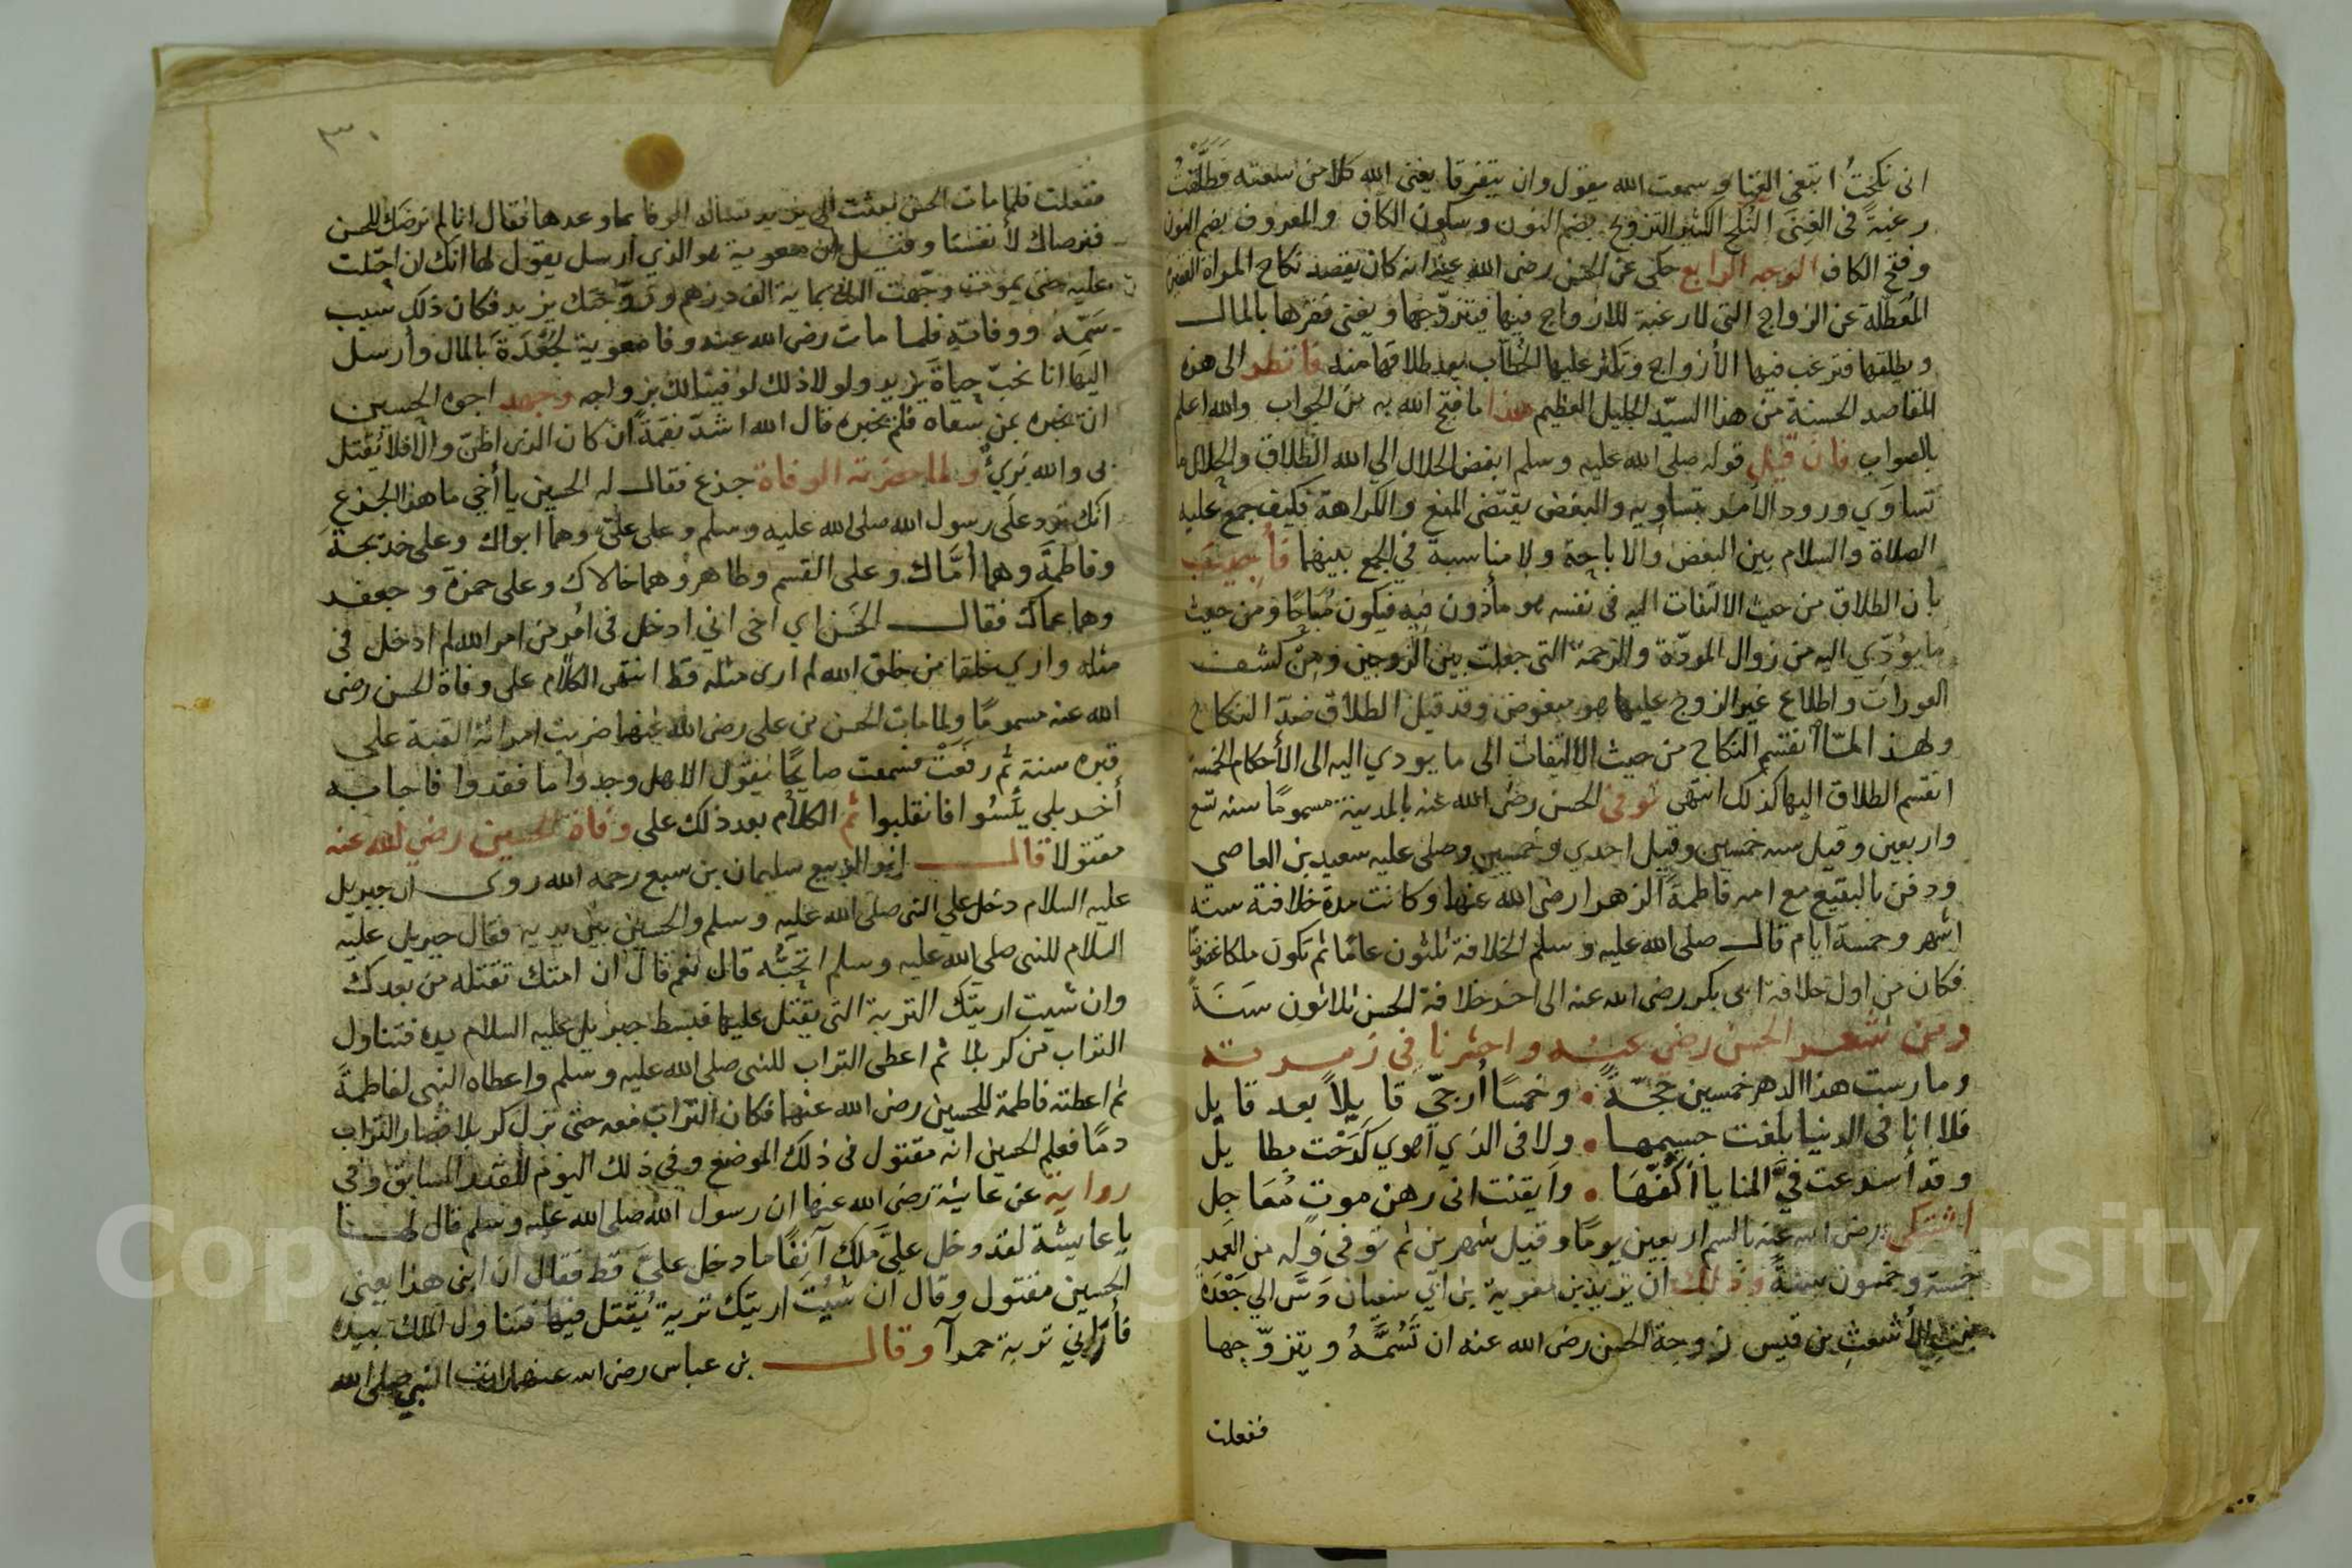 اني نكحتُ ابتغي الغنا وسمعت الله يقول وان يتفرقا يغني الله كلا من سعته فطلّقتُ
رغبةً في الغِنَى النُكَح الكثير التزويج بضم النون وسكون الكاف والمعروف بضم النون
وفتح الكاف الوجه الرابع حكي عن الحسن رضي الله عنه انه كان يقصد نكاح المراة الفقيرة
المُعَطّلة عن الزواج التي لا رغبة للازواج فيها فيتزوّجها ويغني فقرها بالمال
ويطلقها فترغب فيها الأزواج وتكثر عليها الخطاب بعد طلاقها منه فانظر الى هذه
المقاصد الحسنة من هذا السيّد الجليل العظيم هذا ما فتح الله به من الجواب والله اعلم
بالصواب فان قيل قوله صلى الله عليه وسلم ابغض الحلال الى الله الطلاق والحلال ما
تساوَي ورود الأمر بتساويه والبغض يقتضي المنع والكراهة فكيف جمع عليه
الصلاة والسلام بين البغض والاباحة ولا مناسبة في الجمع بينهما فأجيب
بان الطلاق من حيث الالتفات اليه في نفسه هو مأذون فيه فيكون مُباحًا ومن حيث
ما يؤدّي اليه من زوال المودّة والرحمة التي جعلت بين الزوجين ومن كشف
العورات واطلاع غير الزوج عليها هو مبغوض وقد قيل الطلاق ضدّ النكاح
ولهذا لمّا انقسم النكاح من حيث الالتفات الى ما يودي اليه الى الأحكام الخمسة
انقسم الطلاق اليها كذلك انتهى توفي الحسن رضي الله عنه بالمدينة مسمومًا سنه تسع
واربعين وقيل سنه خمسين وقيل احدي وخمسين وصلى عليه سعيد بن العاصي
ودفن بالبقيع مع امه فاطمة الزهرا رضي الله عنها وكانت مدة خلافته ستة
اشهر وخمسة ايام قال صلى الله عليه وسلم الخلافة ثلثون عامًا ثم تكون ملكا عضوضا
فكان من اول خلافة ابي بكر رضي الله عنه الى اخر خلافة الحسن ثلاثون سَنَةً
ومن شعر الحسن رضي عنه واحشرنا في زمرته
ومارست هذا الدهر خمسين حجّةً • وخمسًا أُرجّي قايلاً بعد قايل
فلا انا في الدنيا بلغت جسيمها • ولا في الذي اهوي كَدَحْت بطايل
وقد أسرعت فيَّ المنايا أكُفّهَا • وايقنت اني رهن موتٍ مُعَاجل
اشتكى رضي الله عنه بالسم اربعين يومًا وقيل شهرين ثم توفي وله من العمر
خمسة وخمسون سنةً وذلك ان يزيد بن معوية بن ابي سفيان دَسَّ الى جَعْدَة
بنت الأشعث بن قيس زوجة الحسن رضي الله عنه ان تَسُمَّهُ ويتزوّجها
ففعلت
٣٠
ففعلت فلما مات الحسن بعثت الى يزيد تساله الوفا بما وعدها فقال انا لم نرضَك للحسن
فنرضاك لأنفسنا وقيل ان معوية هو الذي ارسل يقول لها انك ان احتلت
عليه حتى يموت وجّهت اليك بماية الف درهم وزوّجتك يزيد فكان ذلك سبب
سَمّه ووفاته فلما مات رضي الله عنه وفا معوية لجُعْدَة بالمال وأرسل
اليها انا نحبّ حياة يزيد ولولا ذلك لوفينا لك بزواجه وجهد اخوه الحسين
ان يخبره بمن سقاه فلم يخبره قال الله اشدّ نقمةً ان كان الذي اظنّ والّا فلا يُقتل
بي والله بَريٌ ولما حضرته الوفاة جزع فقال له الحسين يا أخي ما هذا الجزع
انك ترد على رسول الله صلى الله عليه وسلم وعلى عليّ وهما ابواك وعلى خديجة
وفاطمةَ وهما أُمَّاك وعلى القسم وطاهر وهما خالاك وعلى حمزة وجعفر
وهما عماك فقال الحَسَن اي اخي اني ادخل في امْر من امر الله لم ادخل في
مثله واري خلقا من خلق الله لم ارى مثله قط انتهى الكلام على وفاة الحسن رضي
الله عنه مسمومًا ولما مات الحسن بن علي رضي الله عنهما ضربت امراته القبة على
قبره سنة ثم رفعَتْ فسمعت صايحًا يقول الا هل وجدوا ما فقدوا فاجابه
أخر بلى يئسُوا فانقلبوا ثم الكلام بعد ذلك على وفاة الحسين رضي الله عنه
مقتولا قال ابو الربيع سليمان بن سبع رحمه الله روى ان جبريل
عليه السلام دخل على النبي صلى الله عليه وسلم والحسين بين يديه فقال جبريل عليه
السلام للنبي صلي الله عليه وسلم اتحبُّه قال نعم قال ان امتك تقتله من بعدك
وان شيت اريتك التربة التي يقتل عليها فبسط جبريل عليه السلام يده فتناول
التراب من كربلا ثم اعطى التراب للنبي صلى الله عليه وسلم واعطاه النبي لفاطمةَ
ثم اعطته فاطمة للحسين رضي الله عنهما فكان التراب معه حتى نزل كربلا فصار التراب
دمًا فعلم الحسين انه مقتول في ذلك الموضع وفي ذلك اليوم للقدر السابق وفي
رواية عن عايشة رضي الله عنها ان رسول الله صلى الله عليه وسلم قال لهــا
يا عايشة لقد دخل عليَّ ملك آنفًا ما دخل عليَّ قط فقال ان ابني هذا يعني
الحسين مقتول وقال ان شئت اريتك تربة يُقتل فيها فتناول الملك بيده
فأراني تربة حمرآ وقال بن عباس رضي الله عنهما النبي صلى الله
Copyright © King Saud University